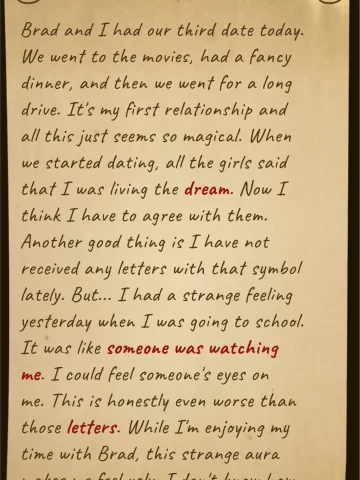 Brad and I had our third date today.
We went to the movies, had a fancy
dinner, and then we went for a long
drive. It's my first relationship and
all this just seems so magical. When
we started dating, all the girls said
that I was living the dream. Now I
think I have to agree with them.
Another good thing is I have not
received any letters with that symbol
lately. But... I had a strange feeling
yesterday when I was going to school.
It was like someone was watching
me. I could feel someone's eyes on
me. This is honestly even worse than
those letters. While I'm enjoying my
time with Brad, this strange aura